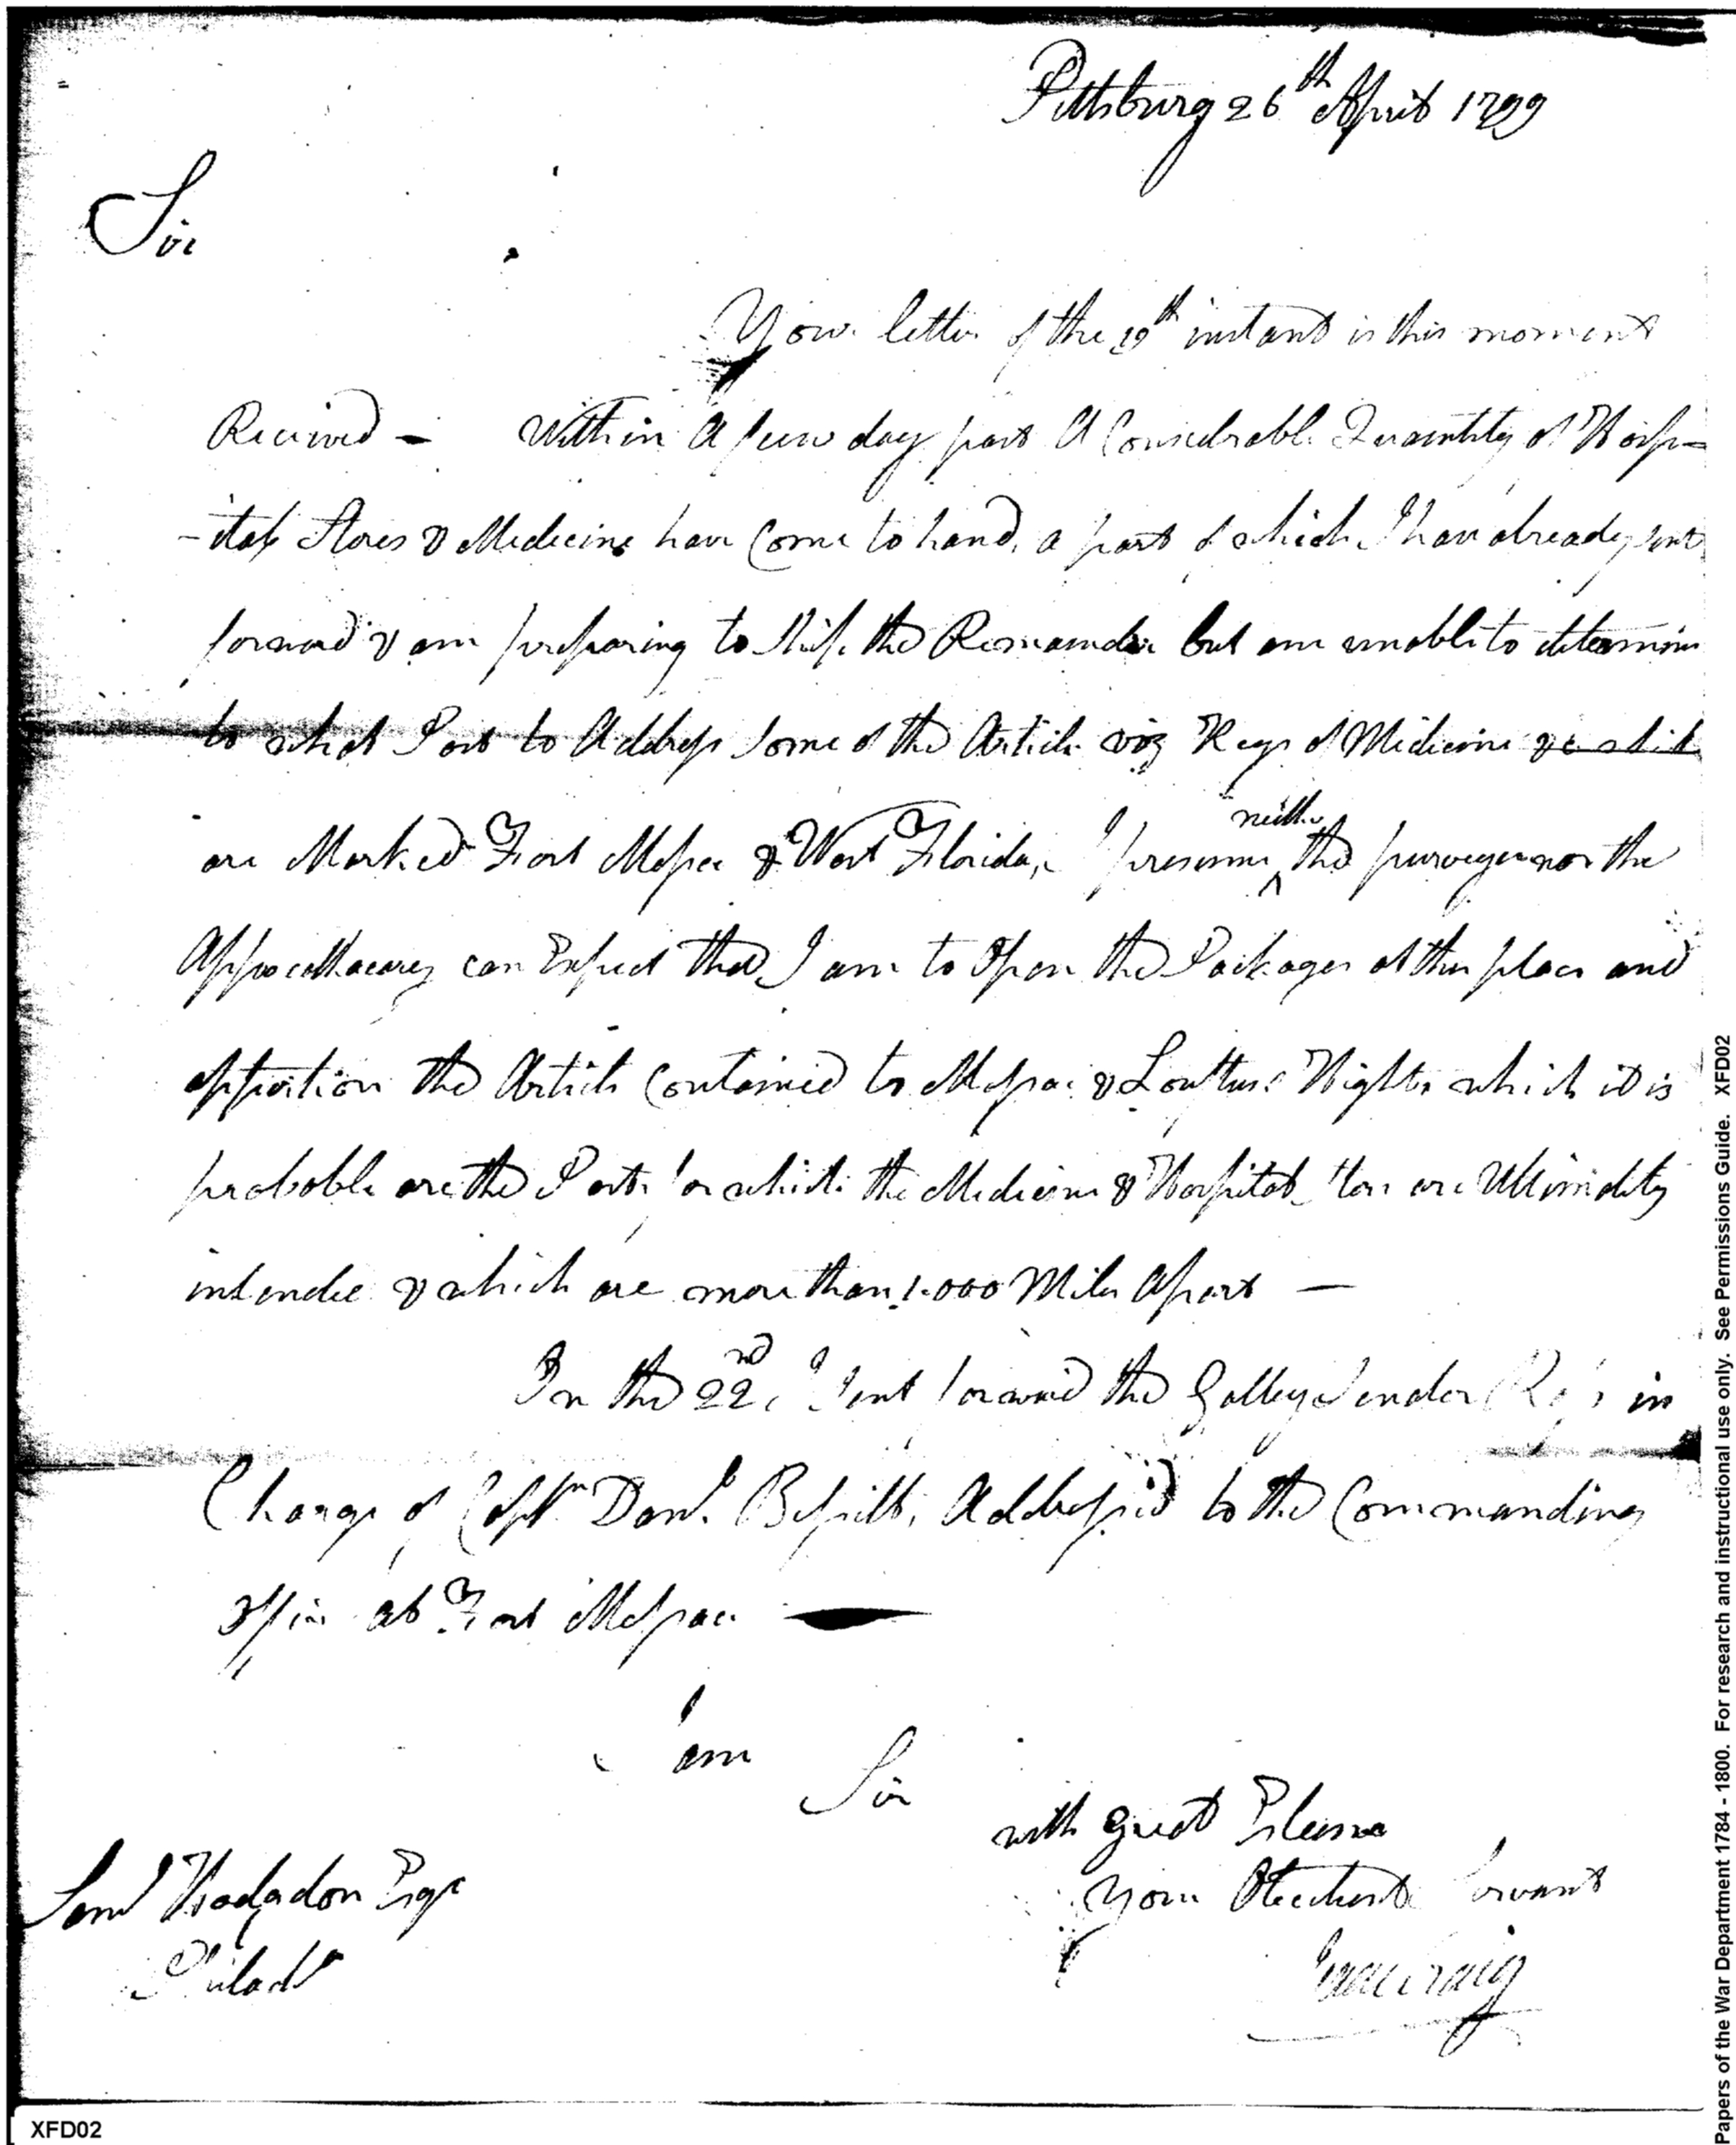 Pittsburg 26th April 1799
Sir
Your letter of the 19th instant is this moment
Received – Within a few days past A Considerable Quantity of Hosp-
-ital Stores & Medicine have Come to hand, a part of which I have already sent
forward & am preparing to Ship the Remainder but am unable to determine
to what Post to Address some of the Articles viz Kegs of Medicine
are Marked Fort Massac & West Florida, I presume neither the purveyor nor the
Appocathacary can Expect that I am to Open the Packages at this place and
apportion the Articles Contained to Massac & Loftus Hights which it is
probable are the Posts for which the Medicine & Hospital Stores are Ultimately
intended & which are more than 1.000 Miles Apart —
On the 22nd I Sent forward the Galley Senator Ross in
Charge of Captn Danl. Bissell, Addressed to the Commanding
Officer at Fort Massac —
I am
Sir
with great Esteem
Your Obedient Servant
Isaac Craig
Saml Hodgdon Esqr
Philada
XFD02
Papers of the War Department 1784 - 1800. For research and instructional use only. See Permissions Guide. XFD02